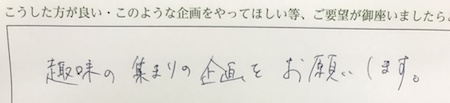 こうした方が良い・このような企画をやってほしい等、ご要望が御座いましたら
趣味の集まりの企画をお願いします。